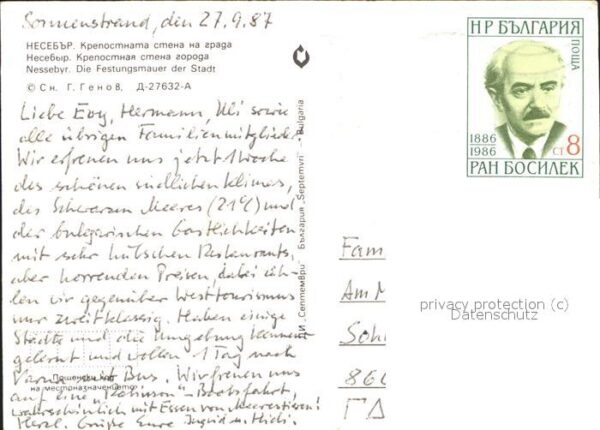 Sonnenstrand, den 27.9.87
НЕСЕБЪР. Крепостната стена на града
Несебыр. Крепостная стена города
Nessebyr. Die Festungsmauer der Stadt
© Сн. Г. Генов, Д-27632-А
Liebe Evy, Hermann, Uli sowie
alle übrigen Familienmitglieder.
Wir erfreuen uns jetzt 1 Woche
des schönen südlichen Klimas,
des Schwarzen Meeres (21°C) und
der bulgarischen Gastlichkeiten
mit sehr hübschen Restaurants,
aber horrenden Preisen, dabei
len wir gegenüber Westtourismus
nur zweitklassig. Haben einige
Städte und die Umgebung kennen
gelernt und wollen 1 Tag nach
Varna mit Bus. Wir freuen uns
auf eine "Robinson"-Bootsfahrt,
wahrscheinlich mit Essen von Meerestieren!
Herzl. Grüße Eure Ingrid u.
Пощенски код
на местоназначението
ДИ „Септември" България „Septemvri" Bulgaria
НР БЪЛГАРИЯ
ПОЩА
1886
1986
СТ 8
РАН БОСИЛЕК
Fam
Am
860
privacy protection (c)
Datenschutz